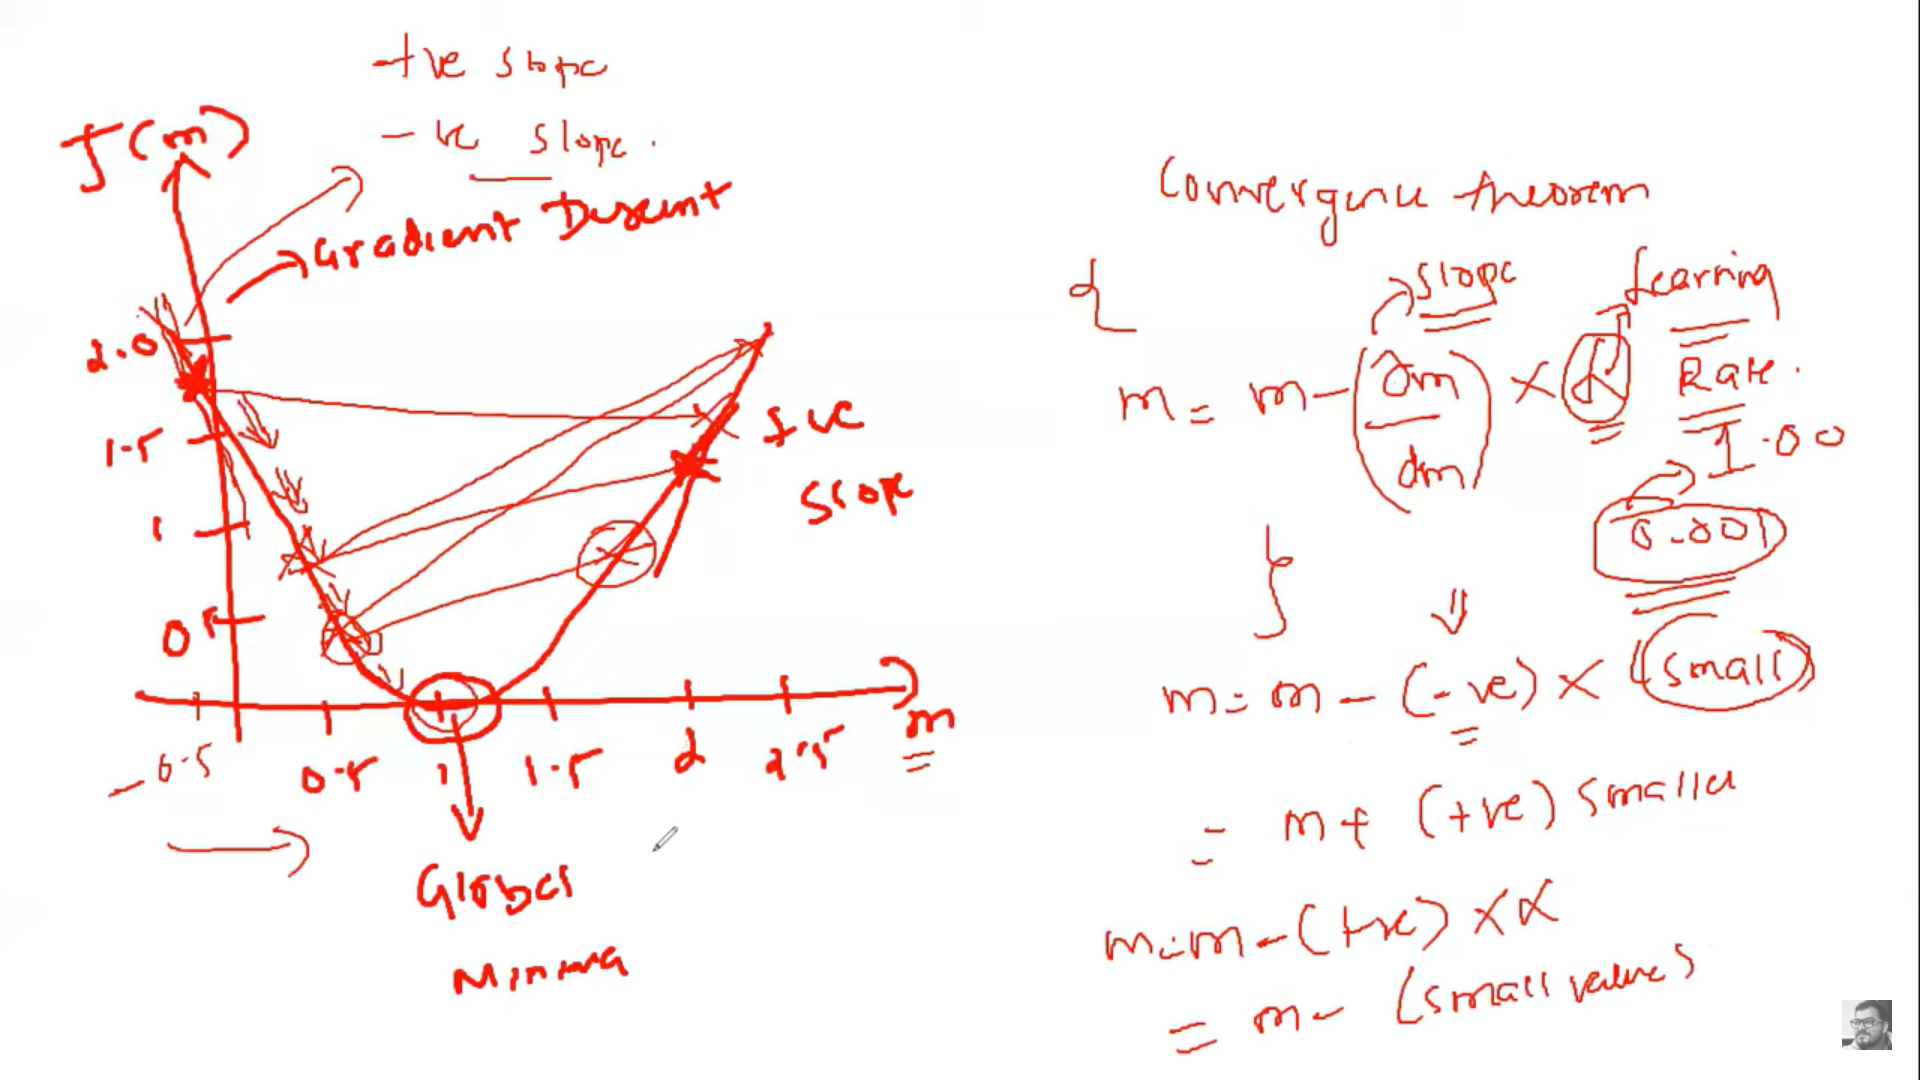 +ve slope
-ve slope.
J(m)
Gradient Descent
2.0
1.5
1
0.5
+ve
slope
-0.5 0.5 1 1.5 2 2.5 m
Global
Minima
Convergence theorem
{
slope
Learning
Rate.
m = m - (∂m/∂m) × α
1.00
0.001
}
m = m - (-ve) × (small)
= m + (+ve) smaller
m = m - (+ve) × α
= m - (small values)